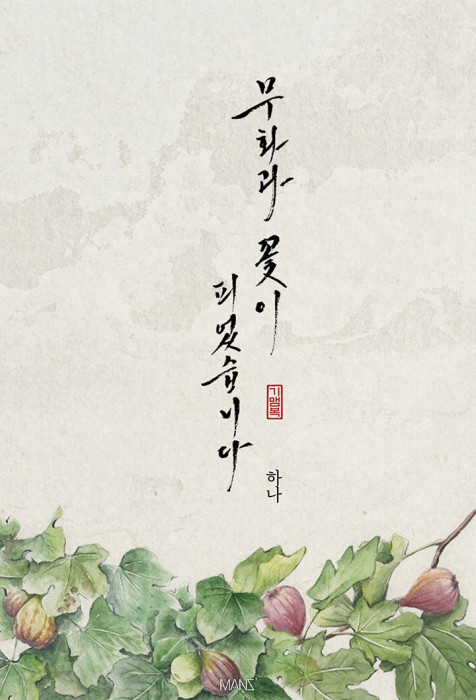 무화과 꽃이
피었습니다
기맴복
하나
MANS